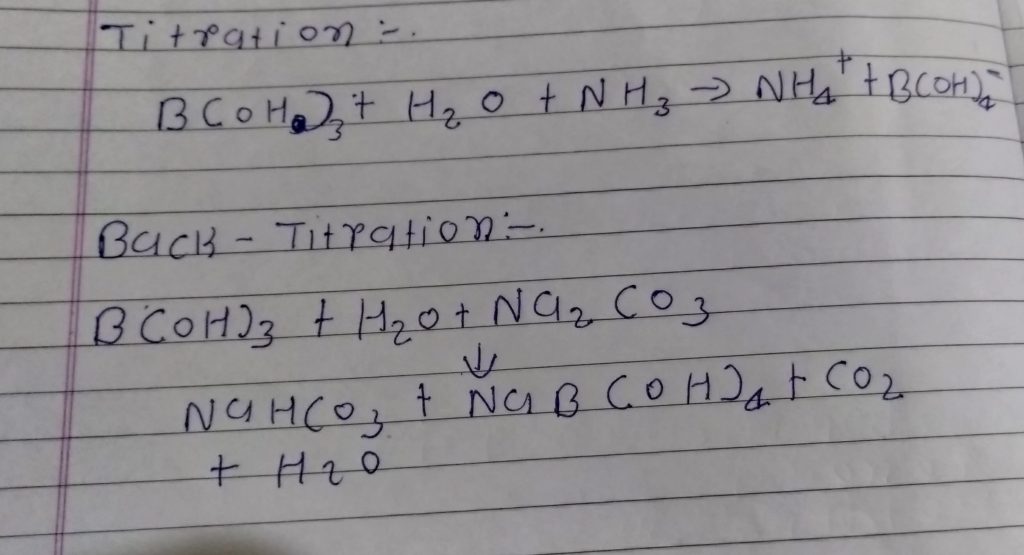 Titration :-.
B(OH)₃ + H₂O + NH₃ → NH₄⁺ + B(OH)₄⁻
Back - Titration :-.
B(OH)₃ + H₂O + Na₂CO₃
↓
NaHCO₃ + NaB(OH)₄ + CO₂
+ H₂O